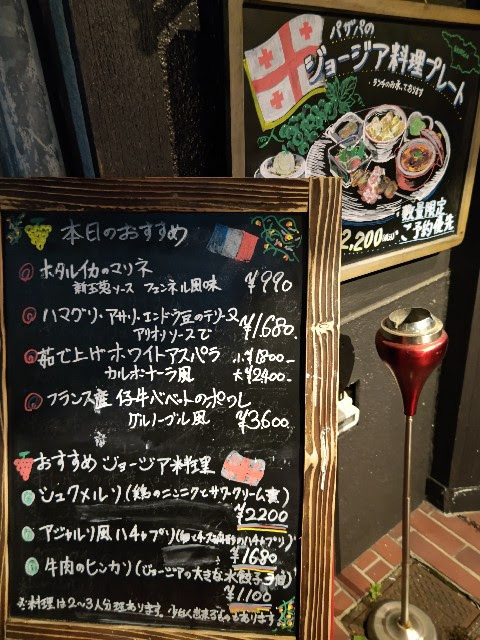 パザパの
ジョージア料理プレート
ランチのみ承っております
数量限定
ご予約優先
2,200(税込)
本日のおすすめ
ホタルイカのマリネ
新玉葱ソース フェンネル風味 ¥990
ハマグリ・アサリ・エンドウ豆のテリーヌ
アリオリソースで ¥1,680
茹で上げホワイトアスパラ 小¥1800
カルボナーラ風 大¥2400
フランス産 仔牛バベットのポワレ
グルノーブル風 ¥3600
おすすめ ジョージア料理
シュクメルリ(鶏のニンニクとサワークリーム煮)
¥2200
アジャルリ風ハチャプリ
¥1680
牛肉のヒンカリ(ジョージアの大きな水餃子3個)
¥1100
※料理は2〜3人分程あります。